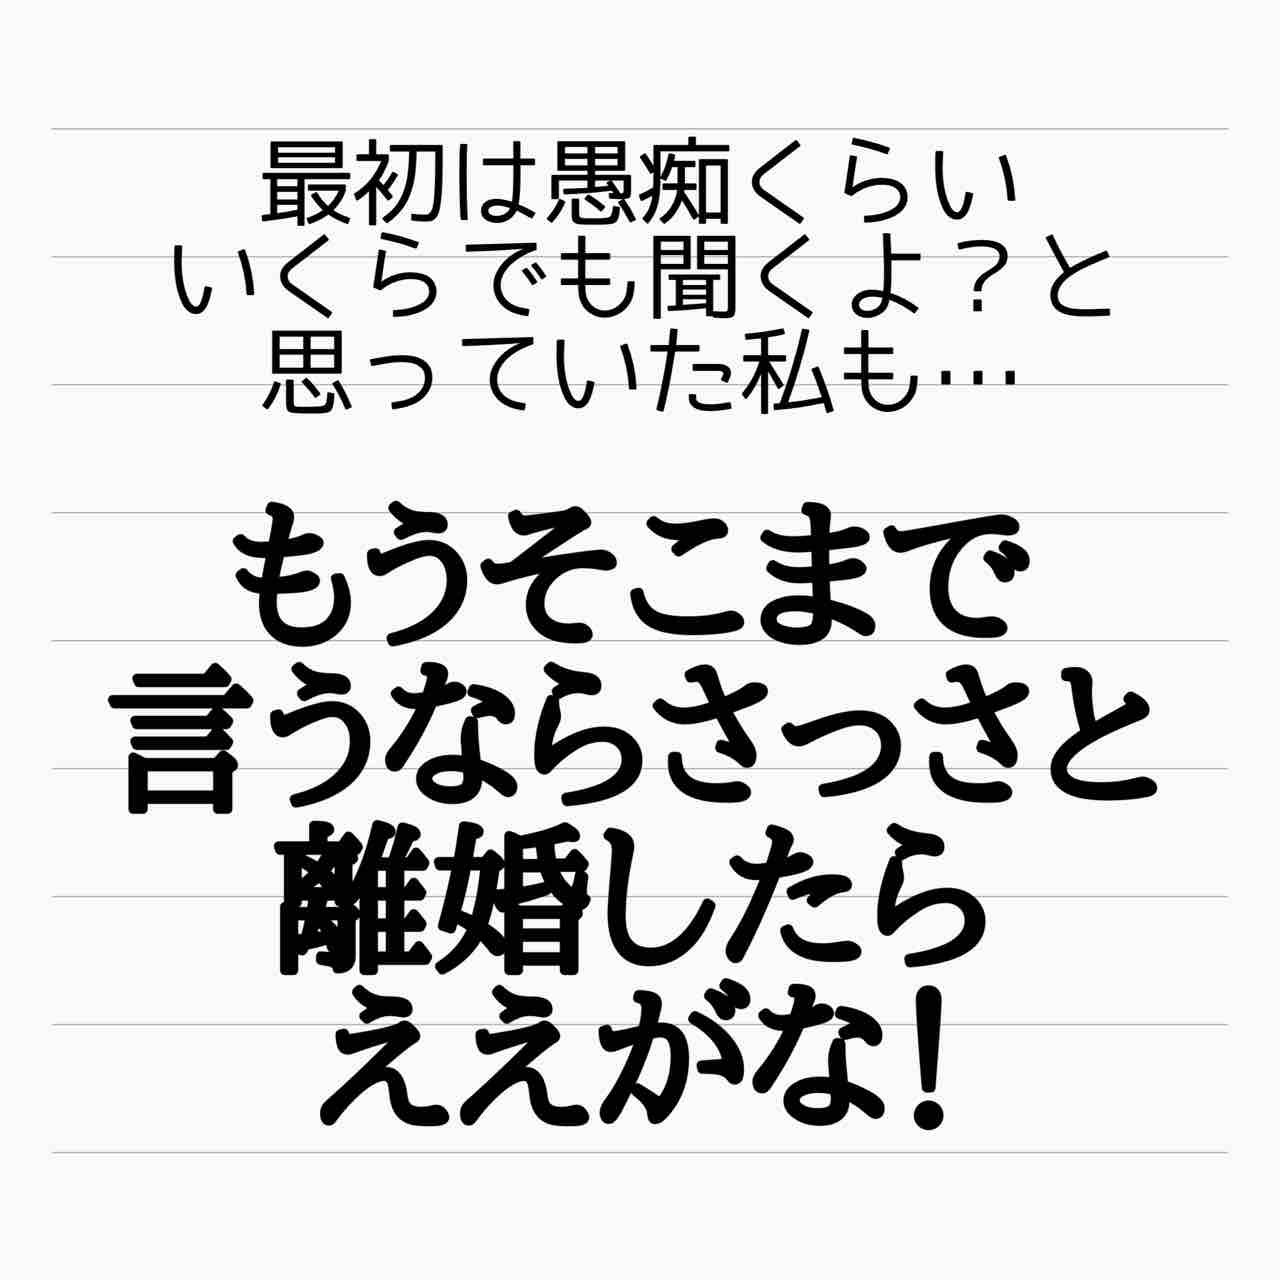 最初は愚痴くらい
いくらでも聞くよ？と
思っていた私も…
もうそこまで
言うならさっさと
離婚したら
ええがな！